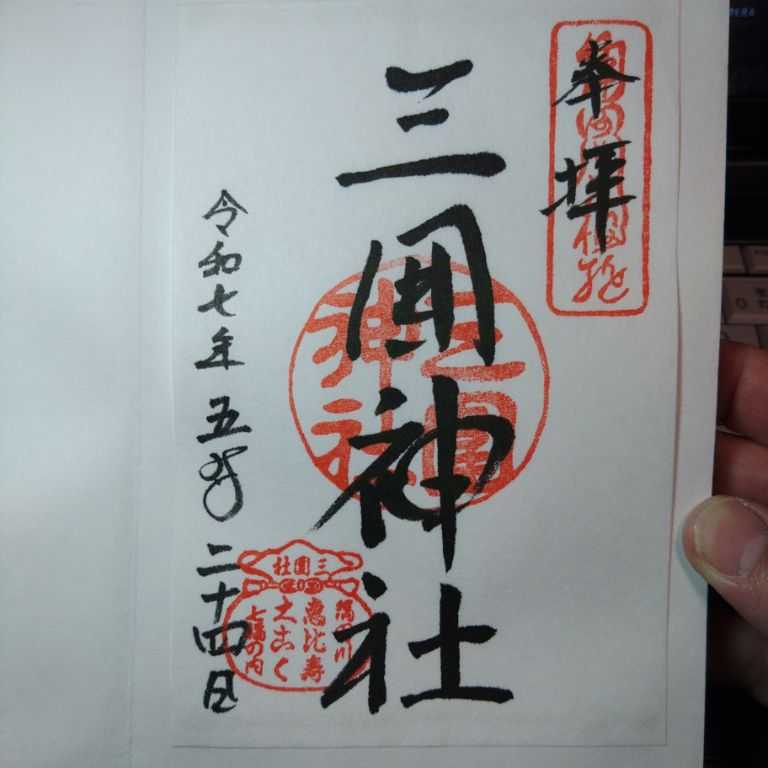 奉拝
三囲神社
令和七年五月二十四日
三囲神社
三囲社
隅田川
恵比寿
大こく
七福の内